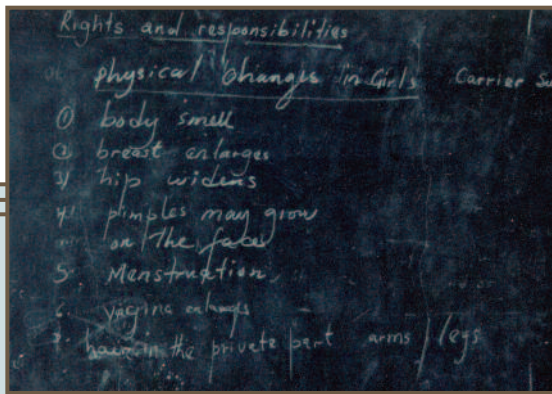 Rights and responsibilities
physical changes in Girls Carrier Su
① body smell
② breast enlarges
3) hip widens
4) pimples may grow
on The face
5. Menstruation,
6. vagina enlargs
7. hair in the private part arms / legs